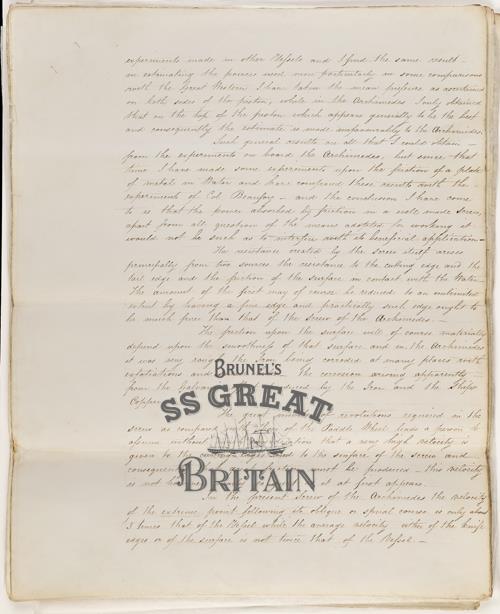 experiments made in other Vessels and I find the same result –
in estimating the powers used more particularly in some comparisons
with the Great Western I have taken the mean pressure as ascertained
on both sides of the piston, while in the Archimedes I only obtained
that on the top of the piston which appears generally to be the best
and consequently the estimate is made unfavourably to the Archimedes.
Such general results are all that I could obtain –
from the experiments on board the Archimedes, but since that
time I have made some experiments upon the friction of a plate
of metal in Water and have compared these results with the
experiments of Col. Beaufoy – and the conclusion I have come
to is that the power absorbed by friction in a well made Screw,
apart from all question of the means adopted for working it
would not be such as to interfere with its beneficial application –
The resistance created by the screw itself arises
principally from two sources the resistance to the cutting edge and the
tail edge and the friction of the surface in contact with the Water.
The amount of the first may of course be reduced to an
extent by having a fine edge and practically such edge ought to
be much finer than that of the Screw of the Archimedes.
The friction upon the surface will of course materially
depend upon the smoothness of that surface and in the Archimedes
it was very rough the Iron being corroded at many places with
exfoliations and The corrosion arising apparently
from the Galvanic produced by the Iron and the Ships
Copper
The great number of revolutions required in the
screw as compared of the Paddle Wheel leads a person to
assume without that a very high velocity is
given to the to the surface of the screw and
consequently must be produced – this velocity
is not it at first appears.
In the present Screw of the Archimedes the velocity
of the extreme point following its oblique or spiral course is only about
3 times that of the Vessel while the average velocity either of the knife
edges or of the surface is not twice that of the Vessel –
BRUNEL'S
SS GREAT
BRITAIN